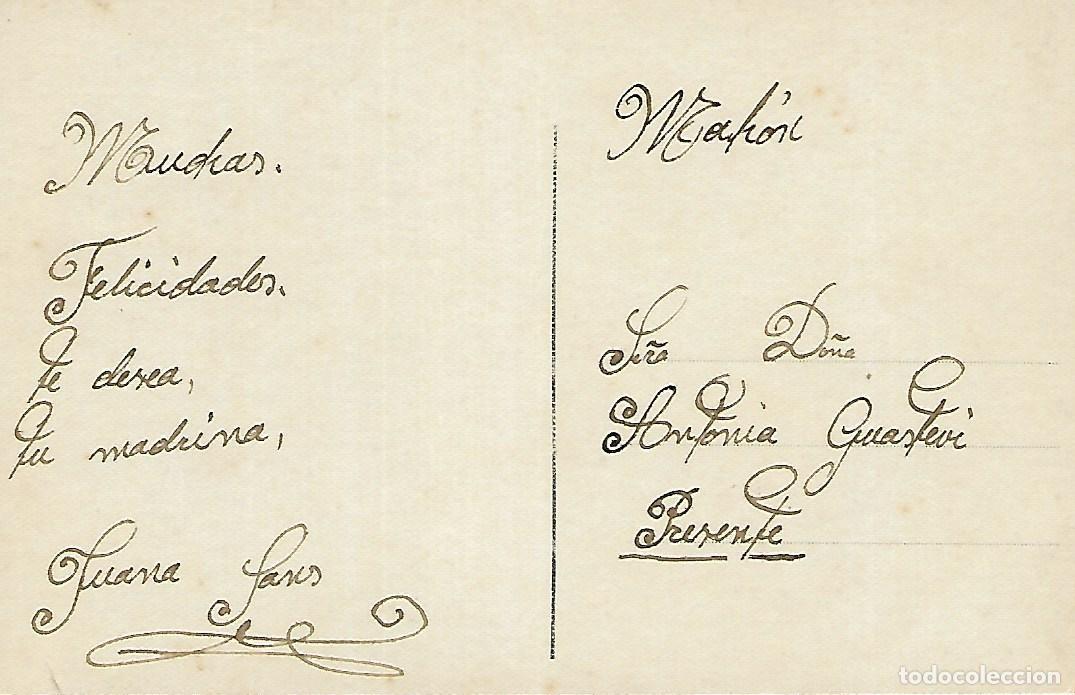 Muchas.
Felicidades.
te desea,
tu madrina,
Juana Sans
Mahón
Sra Doña
Antonia Guastevi
Presente
todocoleccion